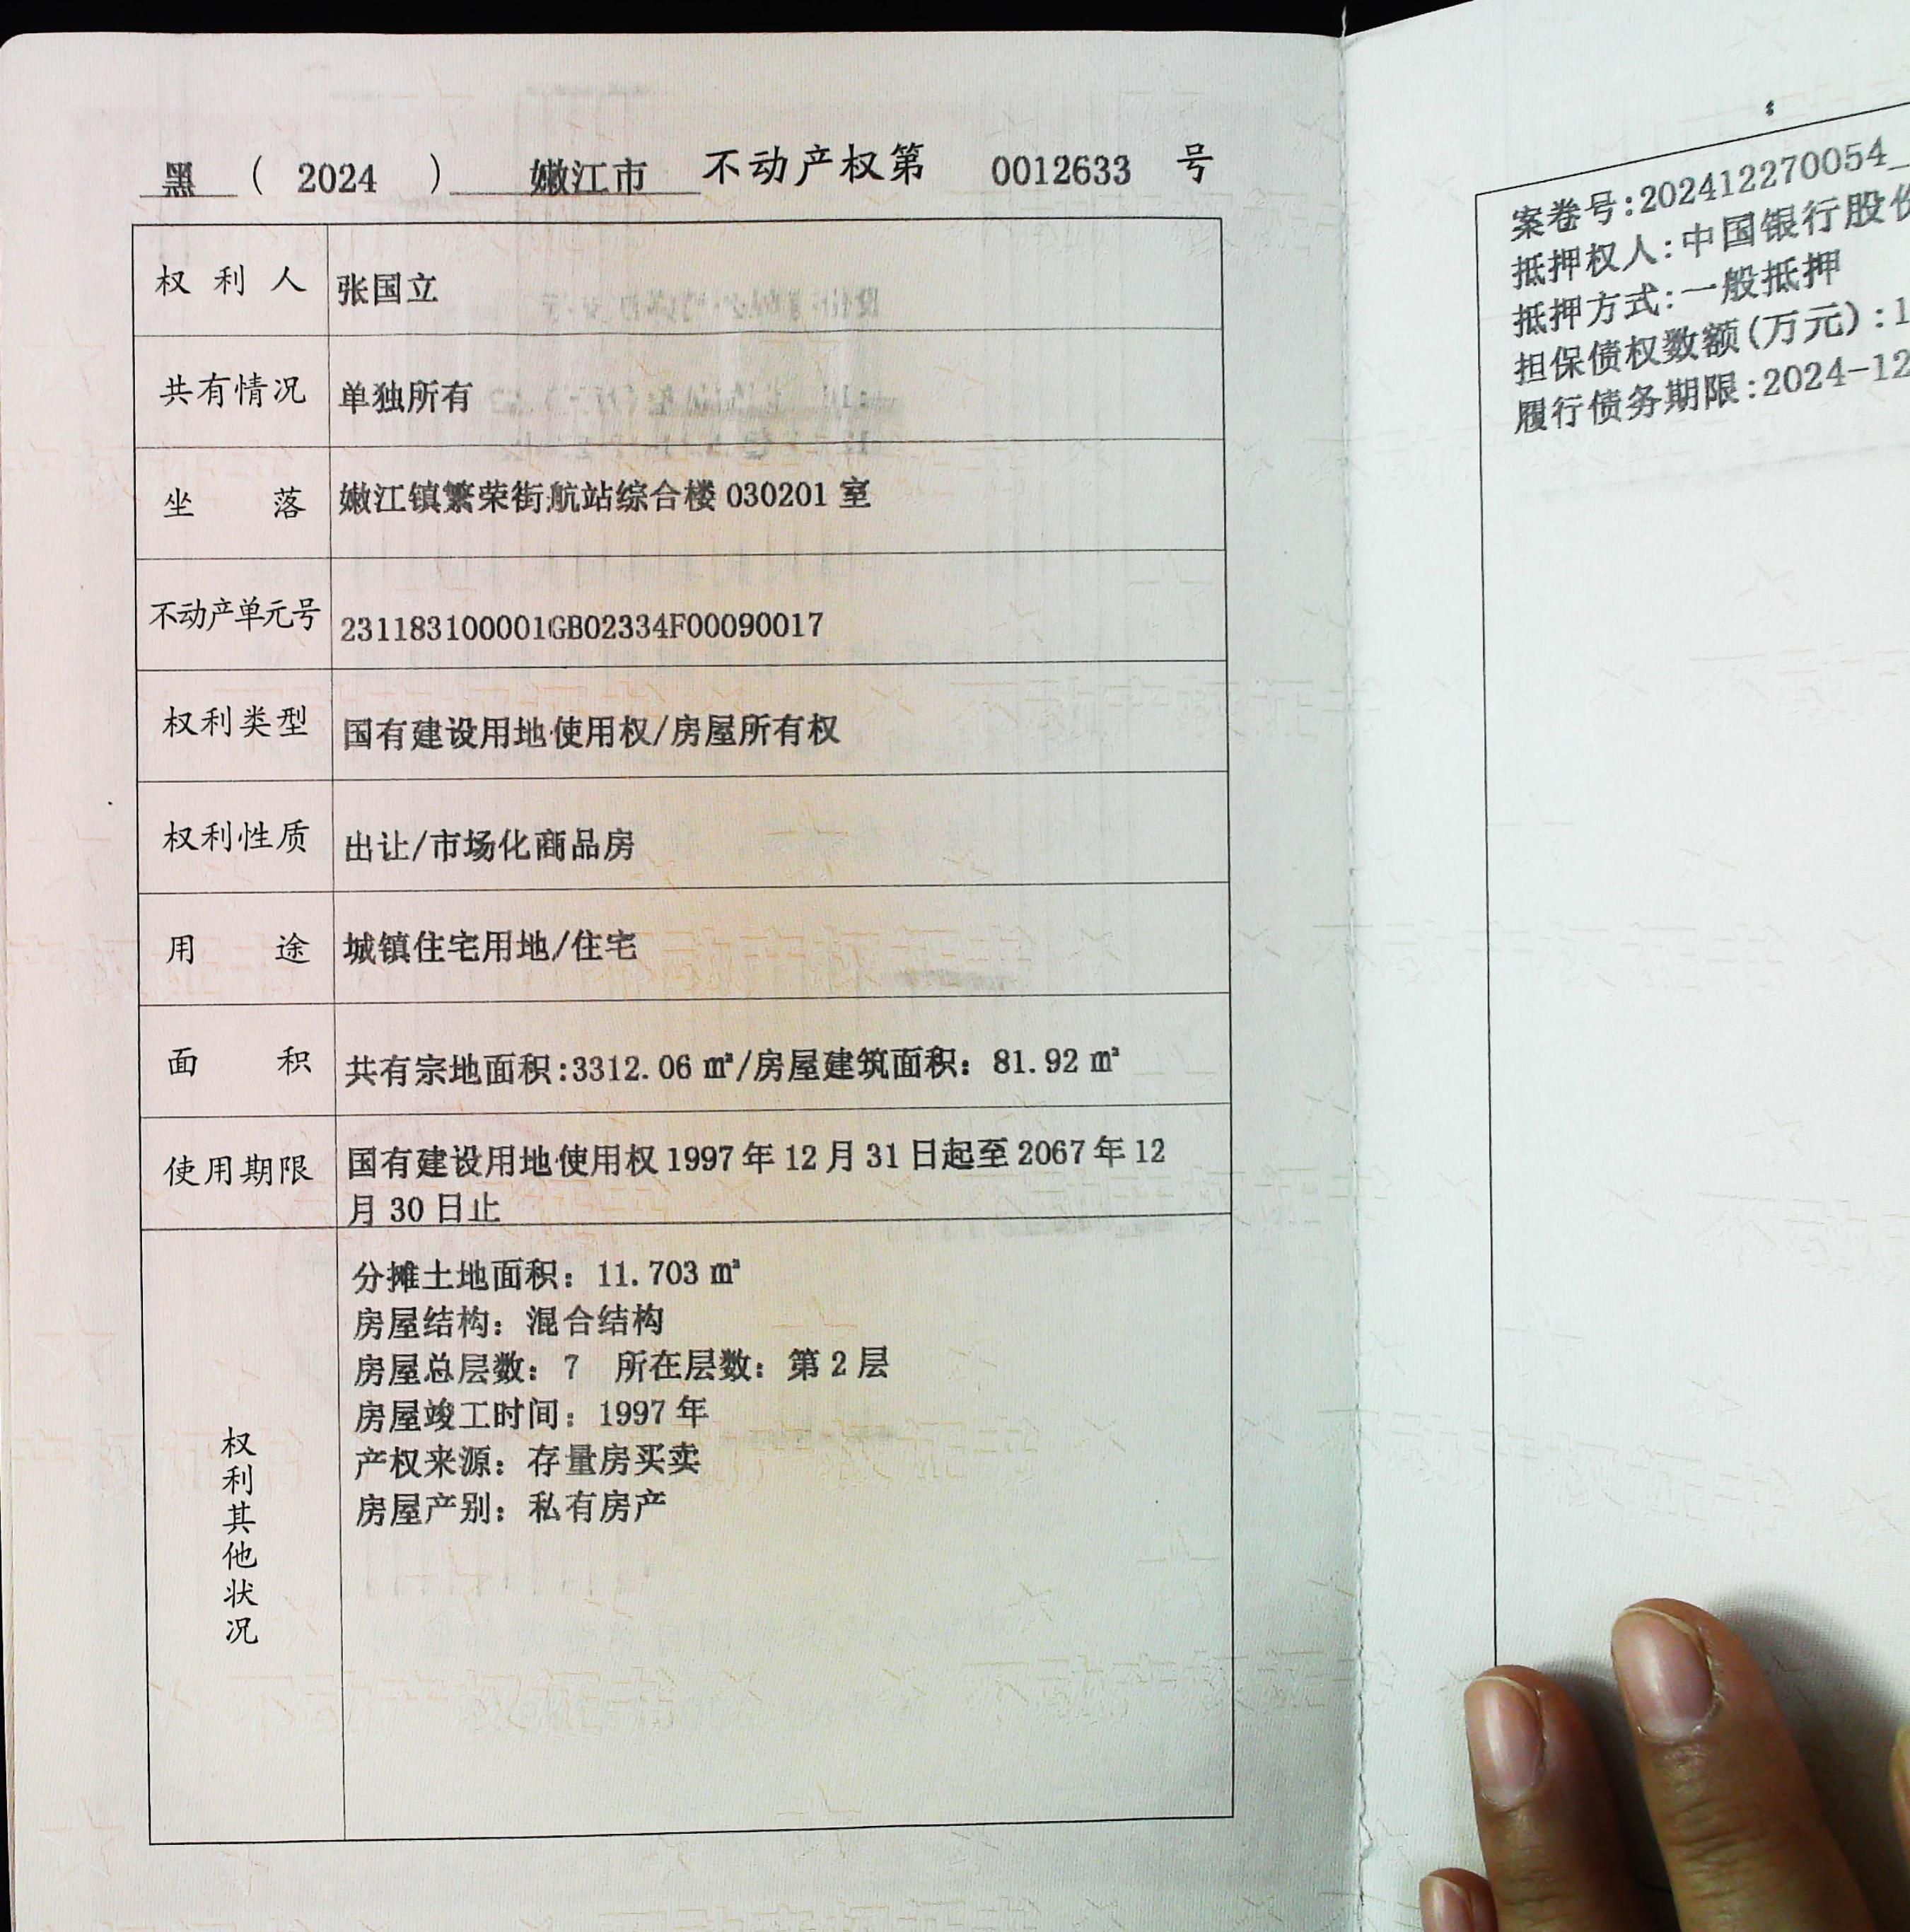 黑 ( 2024 ) 嫩江市 不动产权第 0012633 号
权利人 张国立
共有情况 单独所有
坐落 嫩江镇繁荣街航站综合楼 030201 室
不动产单元号 231183100001GB02334F00090017
权利类型 国有建设用地使用权/房屋所有权
权利性质 出让/市场化商品房
用途 城镇住宅用地/住宅
面积 共有宗地面积:3312.06 ㎡/房屋建筑面积: 81.92 ㎡
使用期限 国有建设用地使用权 1997 年 12 月 31 日起至 2067 年 12
月 30 日止
权利其他状况
分摊土地面积: 11.703 ㎡
房屋结构: 混合结构
房屋总层数: 7 所在层数: 第 2 层
房屋竣工时间: 1997 年
产权来源: 存量房买卖
房屋产别: 私有房产
案卷号:202412270054_
抵押权人:中国银行股份
抵押方式:一般抵押
担保债权数额(万元):1
履行债务期限:2024-12